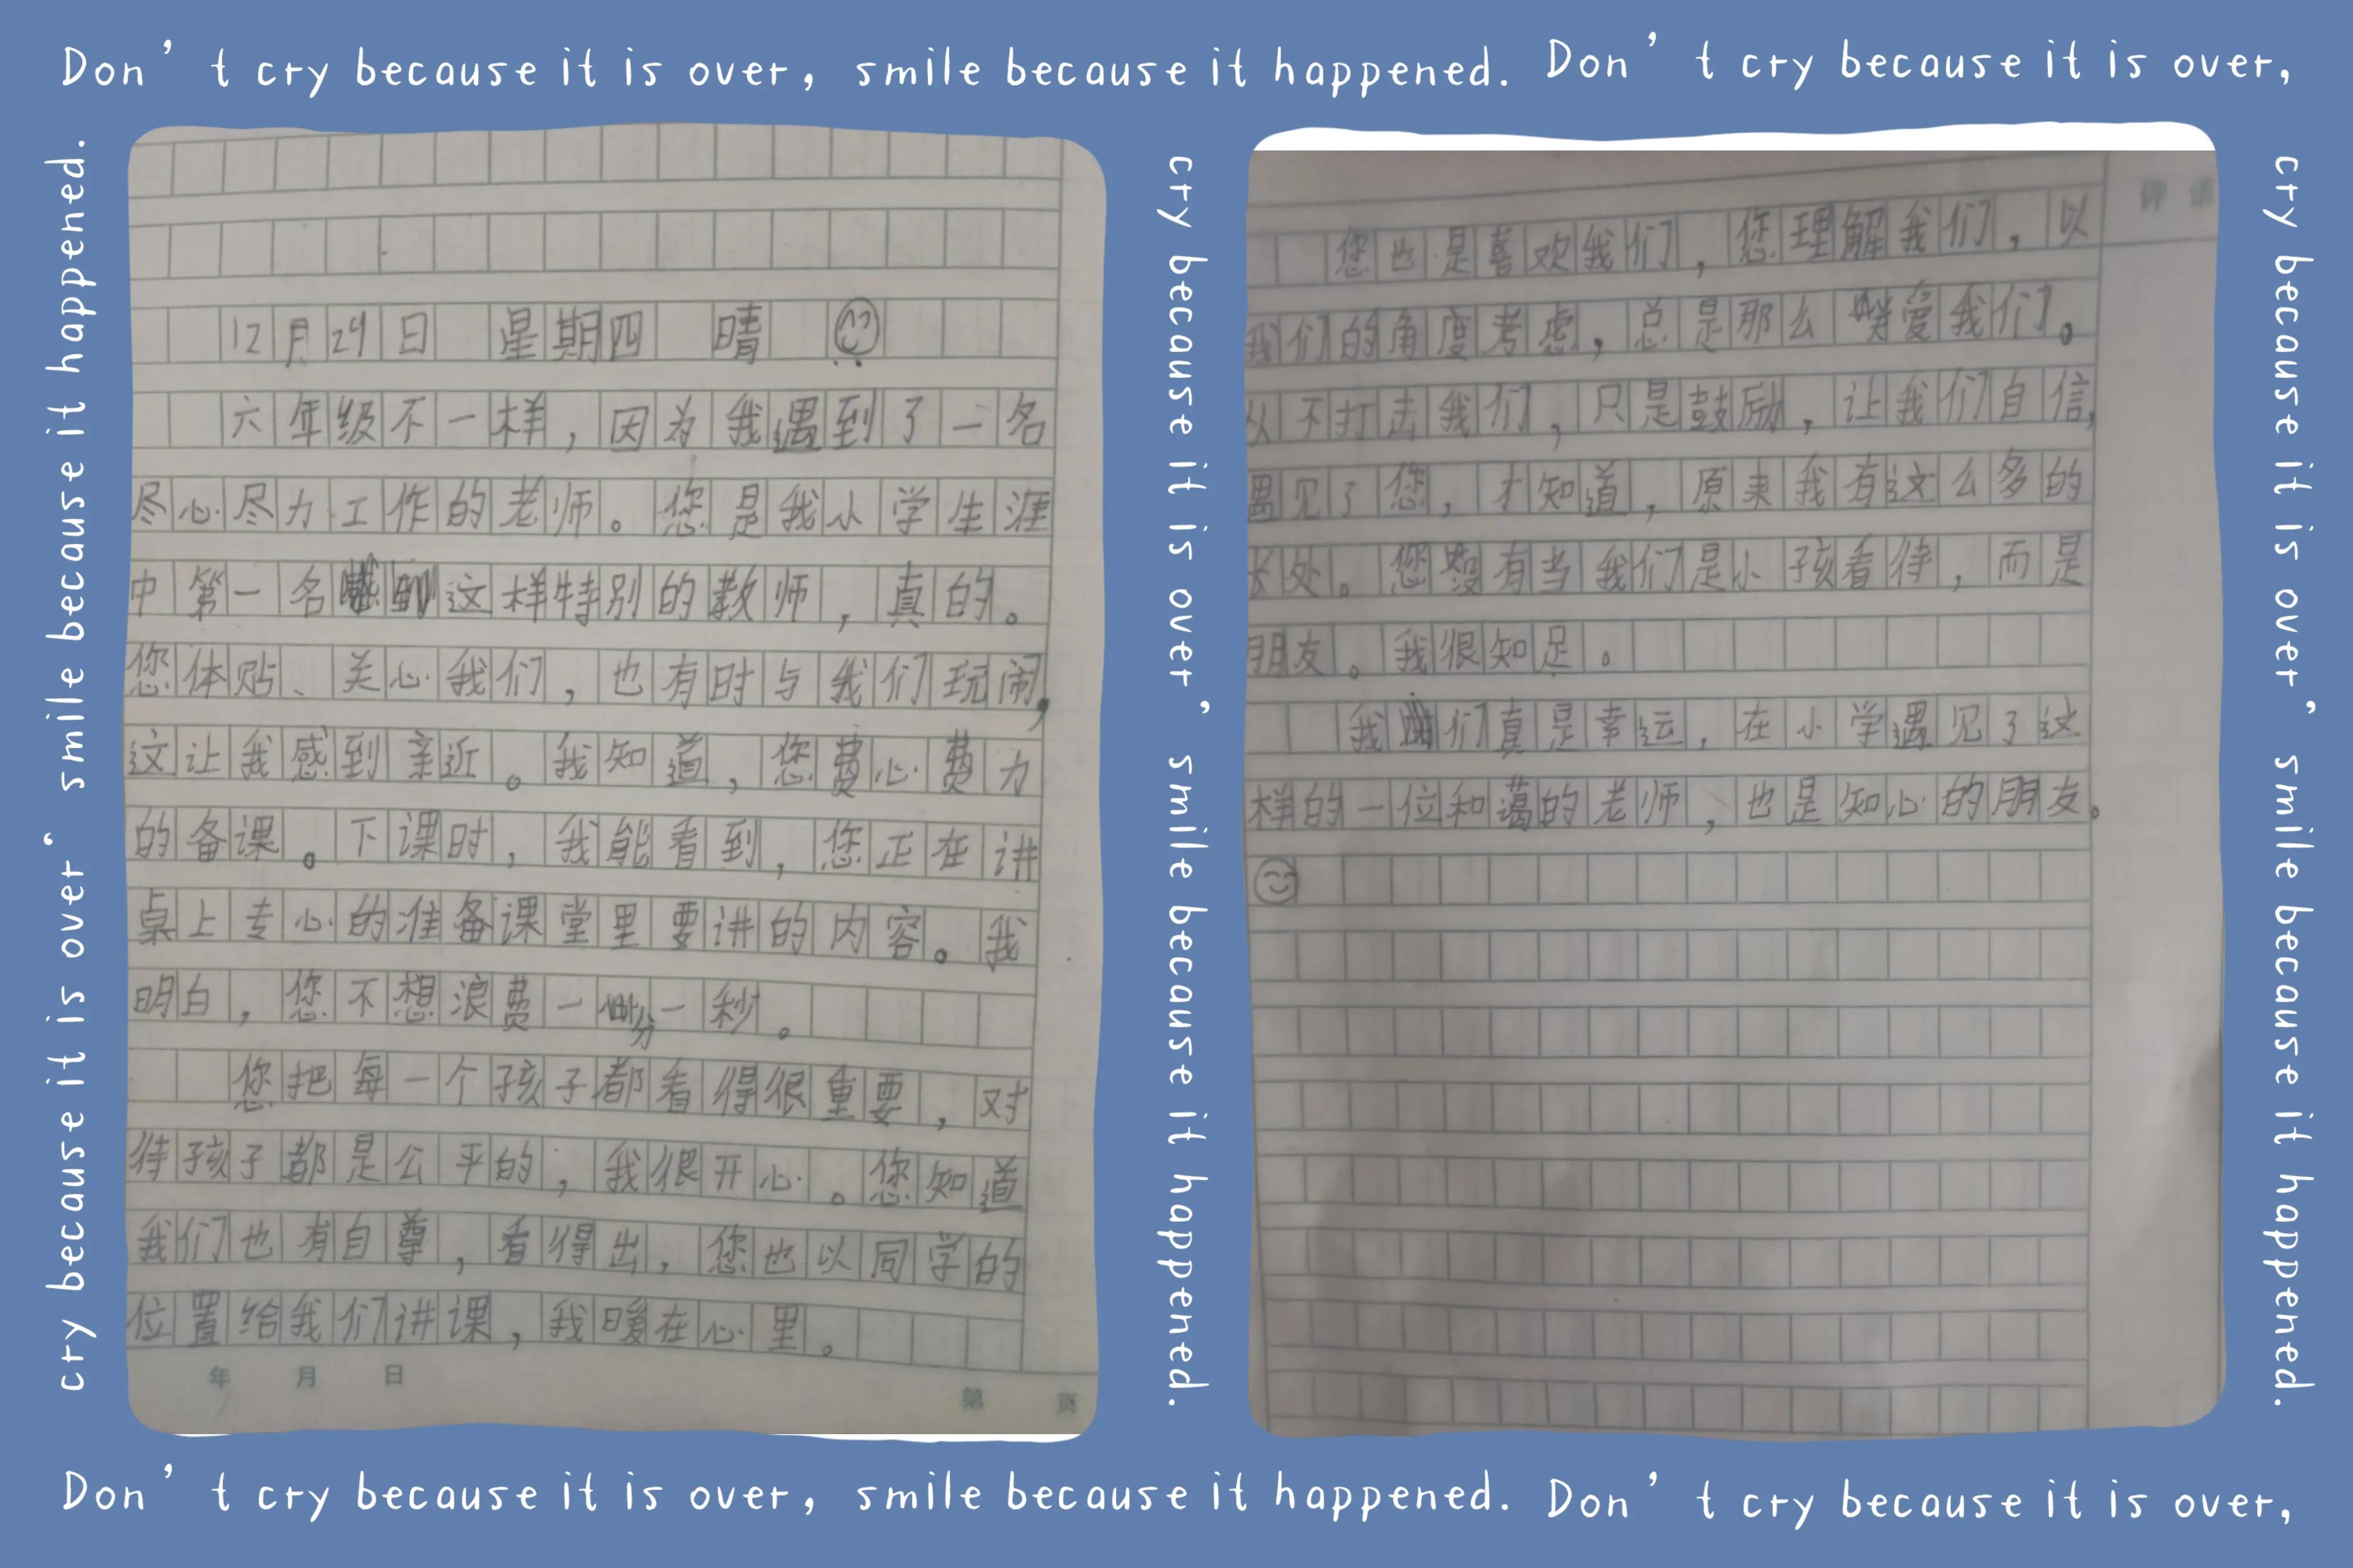 Don't cry because it is over, smile because it happened. Don't cry because it is over,
cry because it is over, smile because it happened.
12月29日 星期四 晴
六年级不一样，因为我遇到了一名
尽心尽力工作的老师。您是我小学生涯
中第一名这样特别的教师，真的。
您体贴、关心我们，也有时与我们玩闹，
这让我感到亲近。我知道，您费心费力
的备课。下课时，我能看到，您正在讲
桌上专心的准备课堂里要讲的内容。我
明白，您不想浪费一分一秒。
您把每一个孩子都看得很重要，对
待孩子都是公平的，我很开心。您知道
我们也有自尊，看得出，您也以同学的
位置给我们讲课，我暖在心里。
年 月 日
第 页
cry because it is over, smile because it happened.
评语
您也是喜欢我们，您理解我们，以
我们的角度考虑，总是那么爱我们。
从不打击我们，只是鼓励，让我们自信，
遇见了您，才知道，原来我有这么多的
长处。您没有当我们是小孩看待，而是
朋友。我很知足。
我们真是幸运，在小学遇见了这
样的一位和蔼的老师，也是知心的朋友。
cry because it is over, smile because it happened.
Don't cry because it is over, smile because it happened. Don't cry because it is over,